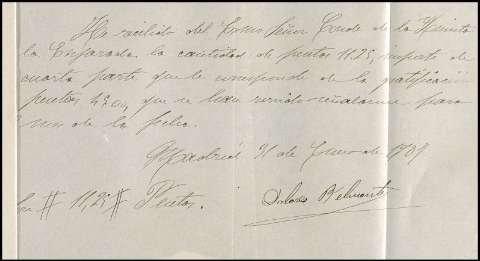 He recibido del Excmo Señor Conde de la Quinta
la Enjarada la cantidad de pesetas 11.25, importe de
cuarta parte que le corresponde de la gratificación
pesetas 45,00, que se han servido señalarme para
de la fecha.
Madrid 31 de Enero de 1789
Son # 11,25 # Pesetas.
Dolores Belmonte